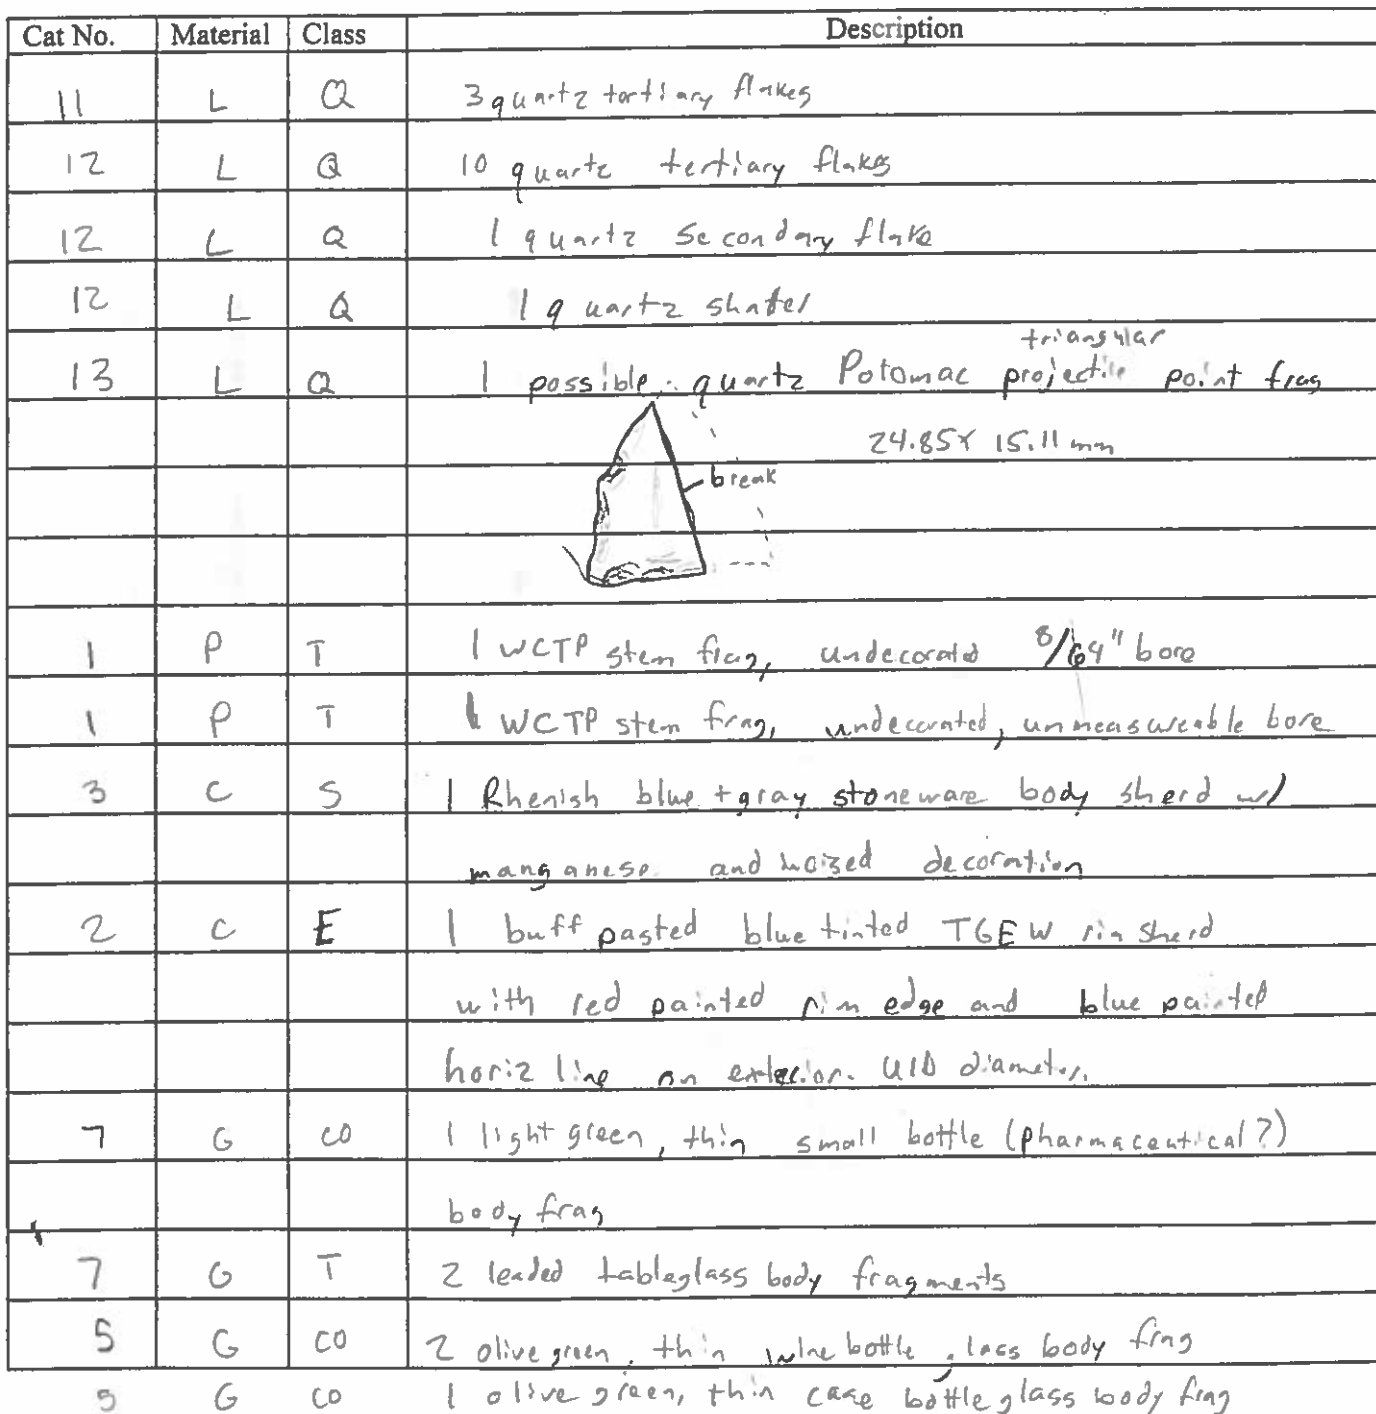 Cat No. Material Class Description
11 L Q 3 quartz tertiary flakes
12 L Q 10 quartz tertiary flakes
12 L Q 1 quartz secondary flake
12 L Q 1 quartz shatter
triangular
13 L Q 1 possible quartz Potomac projectile point frag
24.85 x 15.11 mm
break
1 P T 1 WCTP stem frag, undecorated 8/64" bore
1 P T 1 WCTP stem frag, undecorated, unmeasureable bore
3 C S 1 Rhenish blue + gray stoneware body sherd w/
manganese and incized decoration
2 C E 1 buff pasted blue tinted TGEW rim sherd
with red painted rim edge and blue painted
horiz line on exterior. UID diameter.
7 G CO 1 light green, thin small bottle (pharmaceutical?)
body frag
7 G T 2 leaded tableglass body fragments
5 G CO 2 olive green, thin wine bottle glass body frag
5 G CO 1 olive green, thin case bottle glass body frag